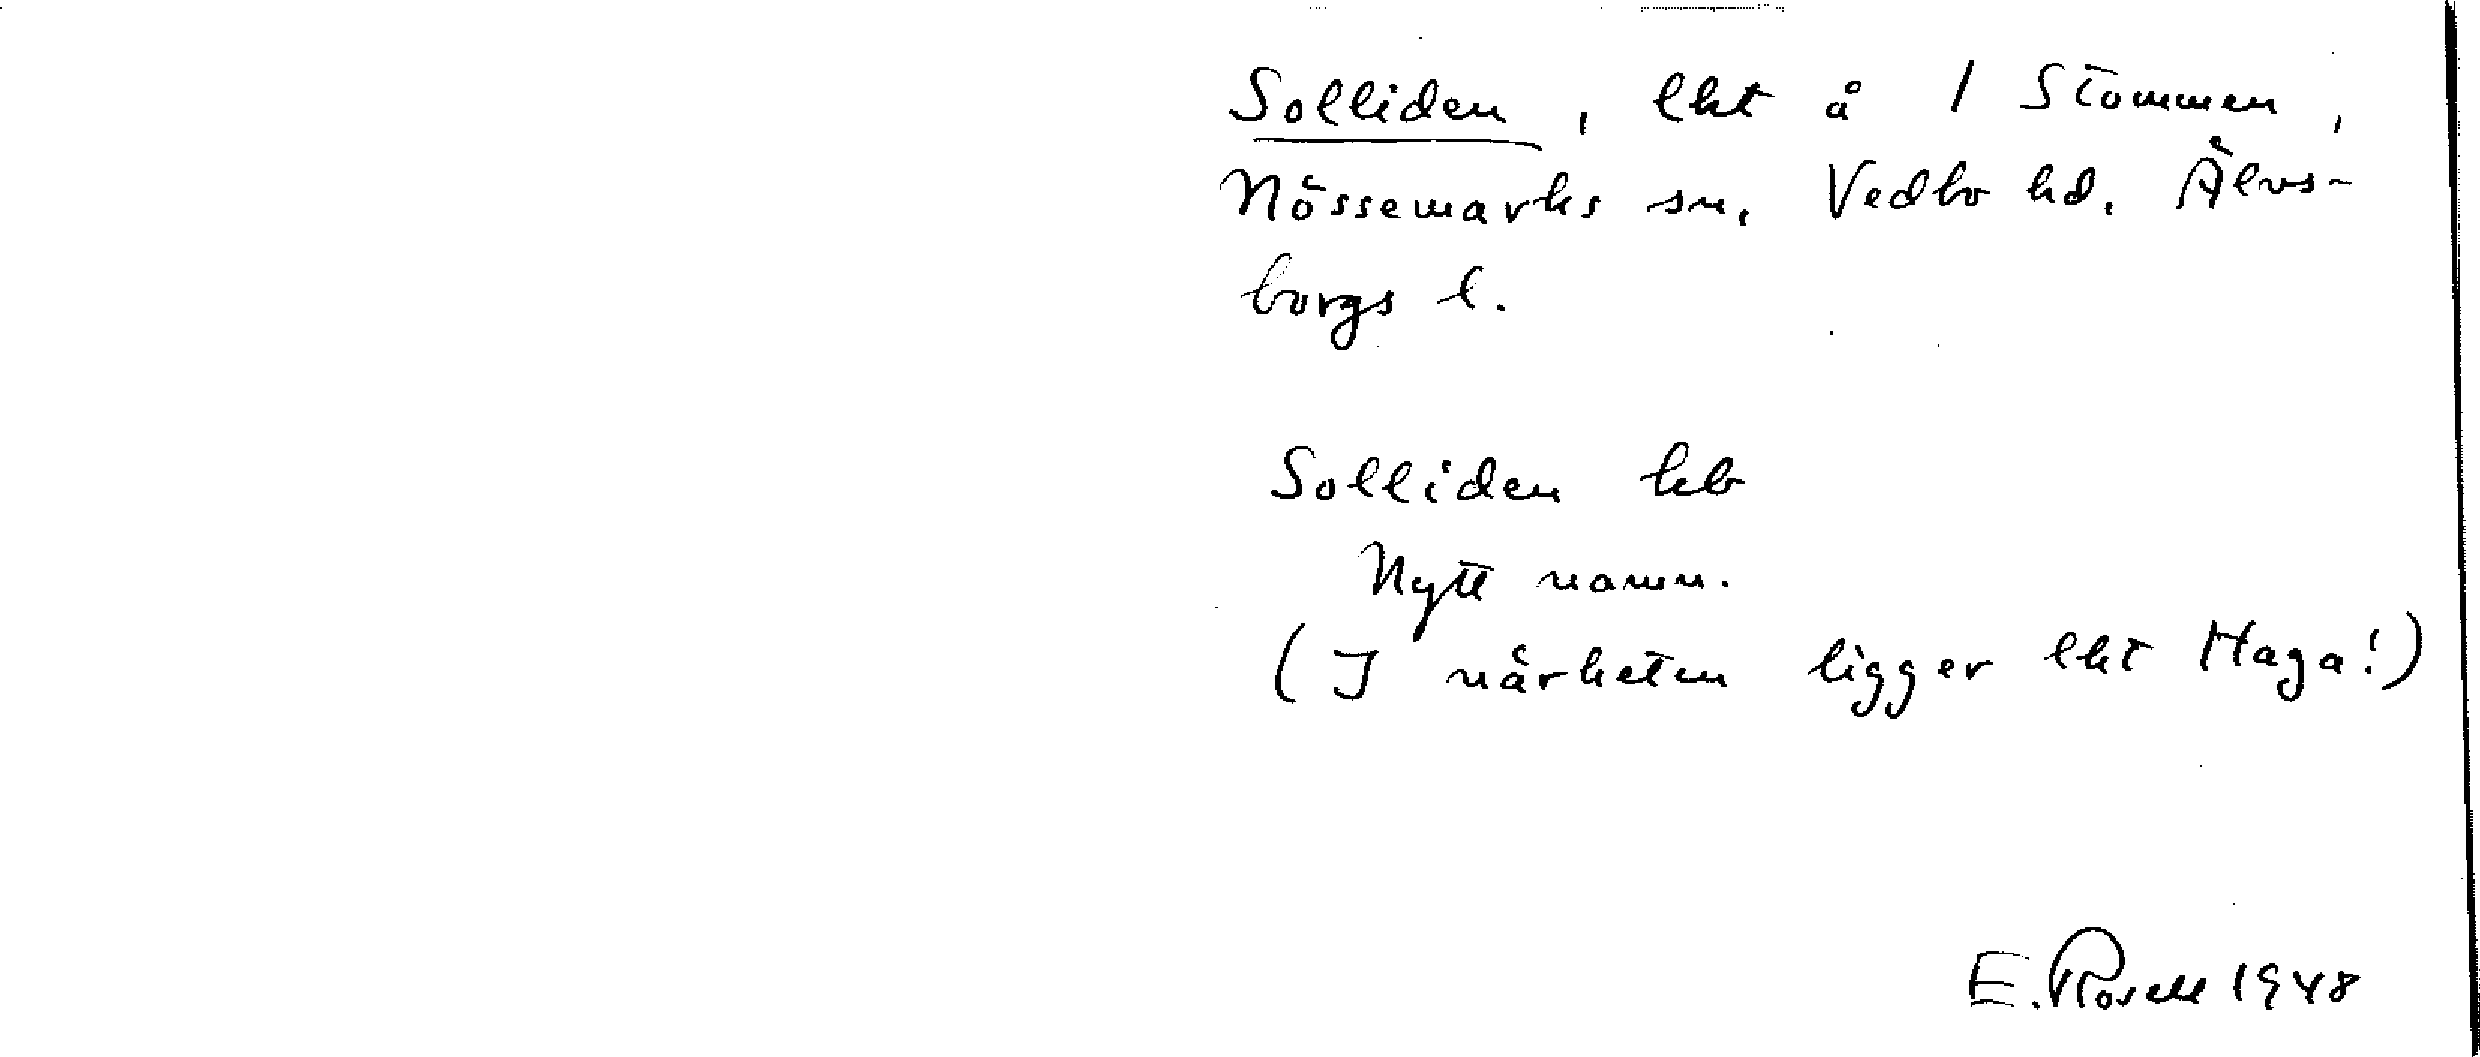 Solliden, lht å 1 Stommen,
Nössemarks sn, Vedbo hd. Älvs-
borgs l.
Solliden kb
Nytt namn.
(I närheten ligger lht Haga!)
E. Rosell 1948